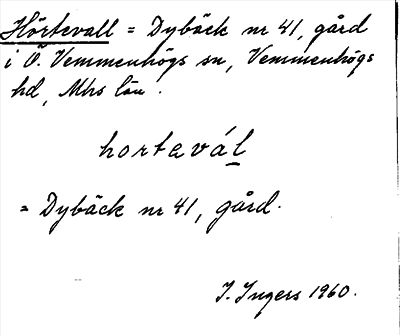 Hörtevall = Dybäck nr 41, gård
i Ö. Vemmenhögs sn, Vemmenhögs
hd, Mhs län.
hortevál
= Dybäck nr 41, gård.
I. Ingers 1960.